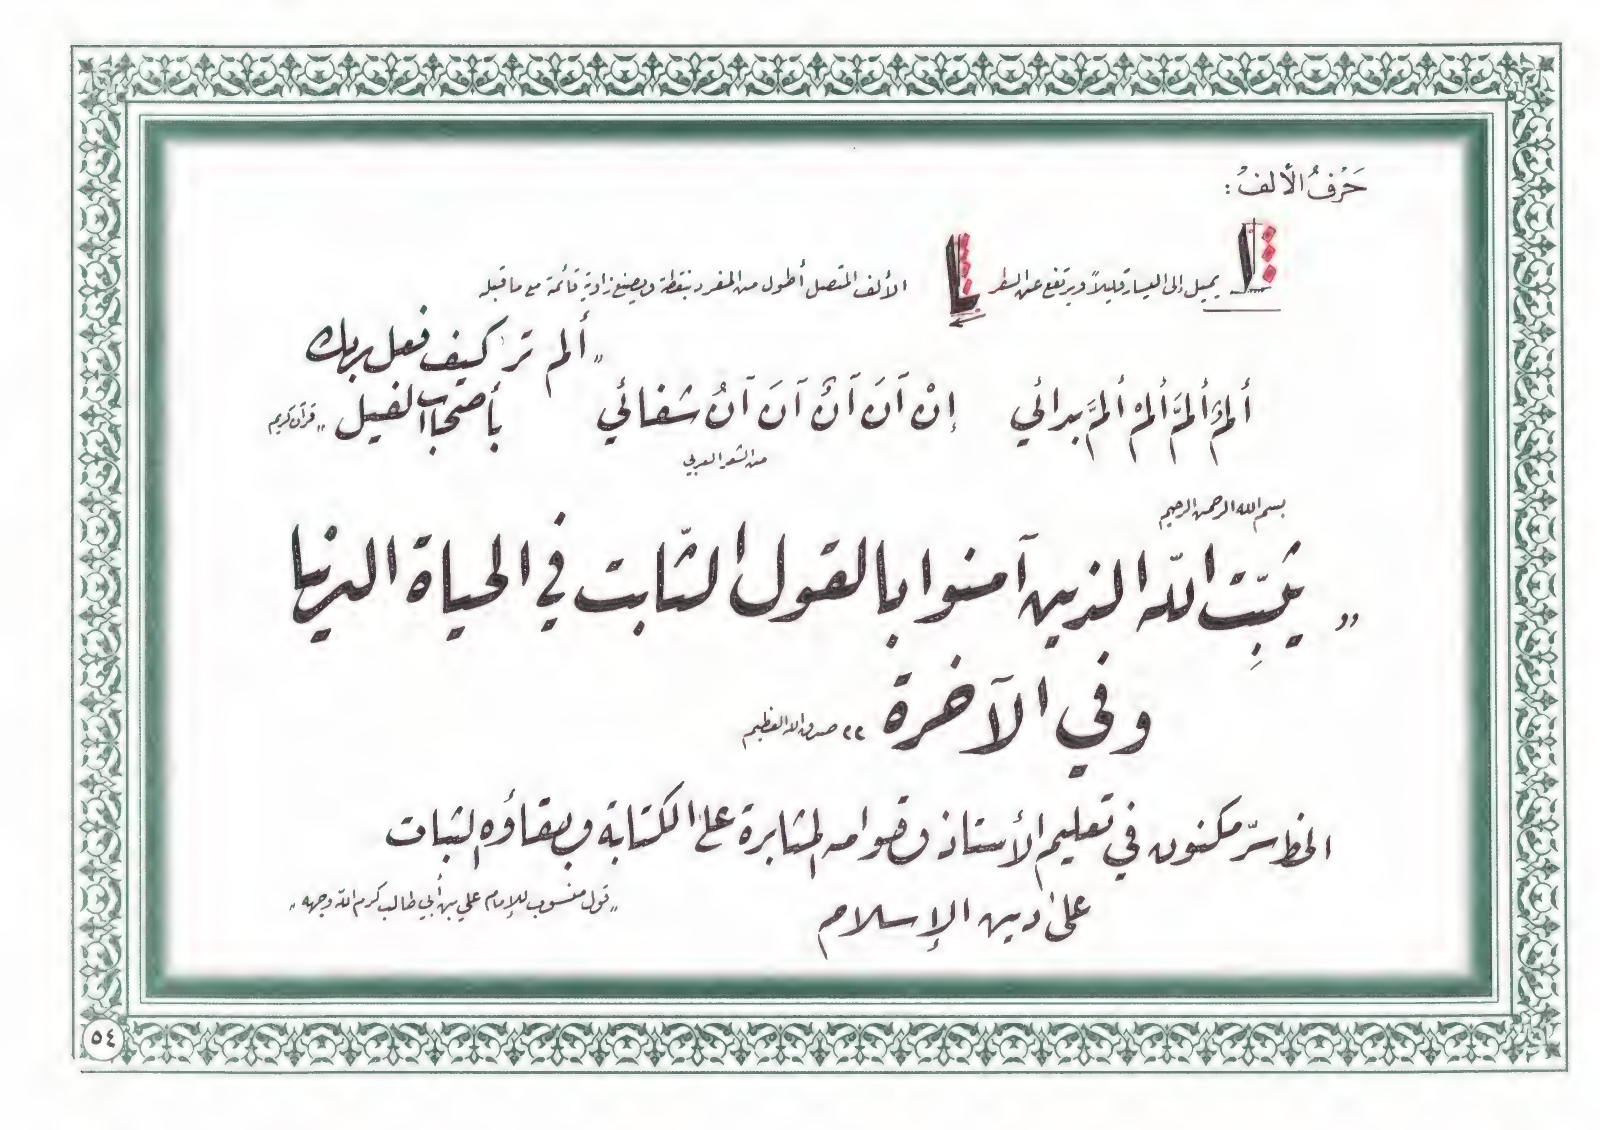 حَرْفُ الألفْ :
يميل إلى اليسار قليلاً ويرتفع عن السطر
الألف المتصل أطول من المفرد بنقطة ويصنع زاوية قائمة مع ما قبله
أَلَمٌ أَلَمَّ أَلَمْ أُلِمَّ بدائي
إنْ آنَ آنٌ آنَ آنُ شفائي
من الشعر العربي
„ ألم تر كيف فعل ربك
بأصحاب الفيل „ قرآن كريم
بسم الله الرحمن الرحيم
„ يثبّت اللّه الذين آمنوا بالقول الثّابت في الحياة الدنيا
وفي الآخرة ٢٢ صدق الله العظيم
الخط سرّ مكنون في تعليم الأستاذ وقوامه المثابرة على الكتابة وبقاؤه الثبات
على دين الإسلام
„ قول منسوب للإمام علي بن أبي طالب كرم الله وجهه „
٥٤